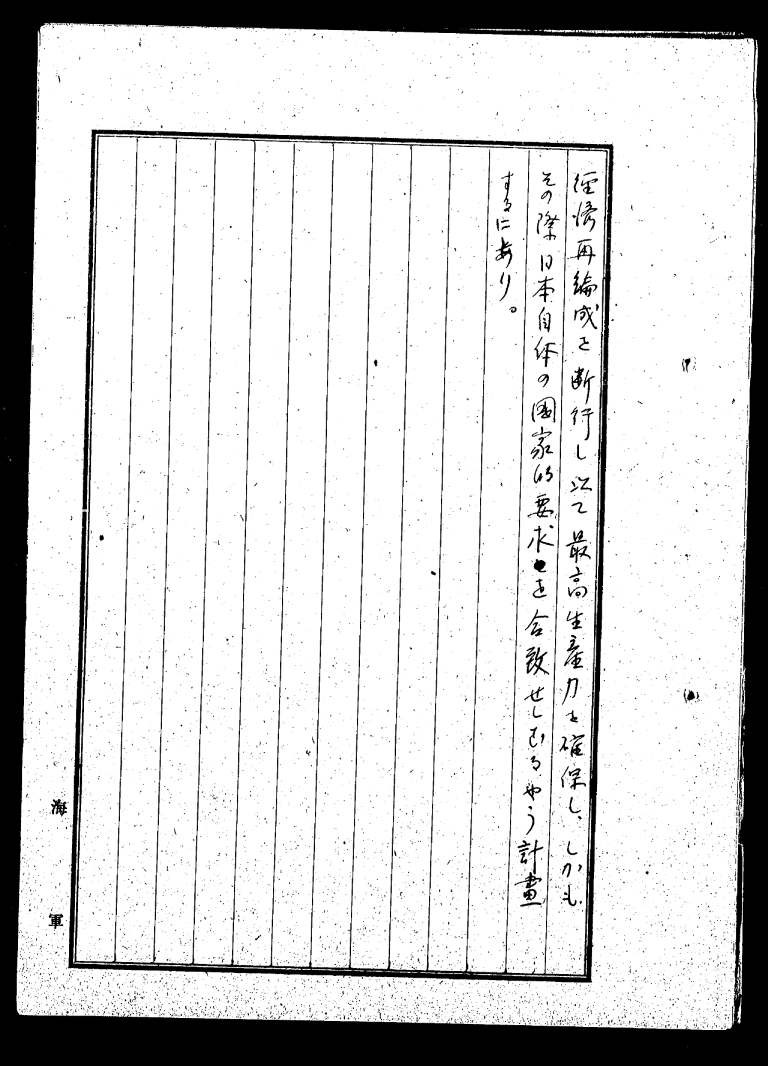 経済再編成を断行し以て最高生產力を確保し、しかも
その際日本自体の國家的要求を合致せしむるやう計畫
するにあり。
海軍